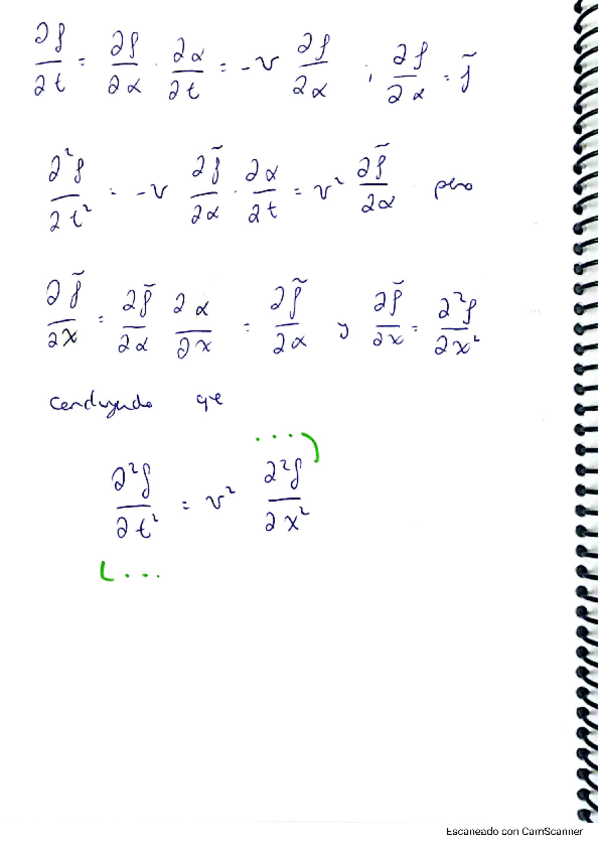 ∂f/∂t = ∂f/∂α · ∂α/∂t = -v ∂f/∂α ; ∂f/∂α = f̃
∂²f/∂t² = -v ∂f̃/∂α · ∂α/∂t = v² ∂f̃/∂α pero
∂f̃/∂x = ∂f̃/∂α ∂α/∂x = ∂f̃/∂α y ∂f̃/∂x = ∂²f/∂x²
Concluyendo que
∂²f/∂t² = v² ∂²f/∂x²
Escaneado con CamScanner